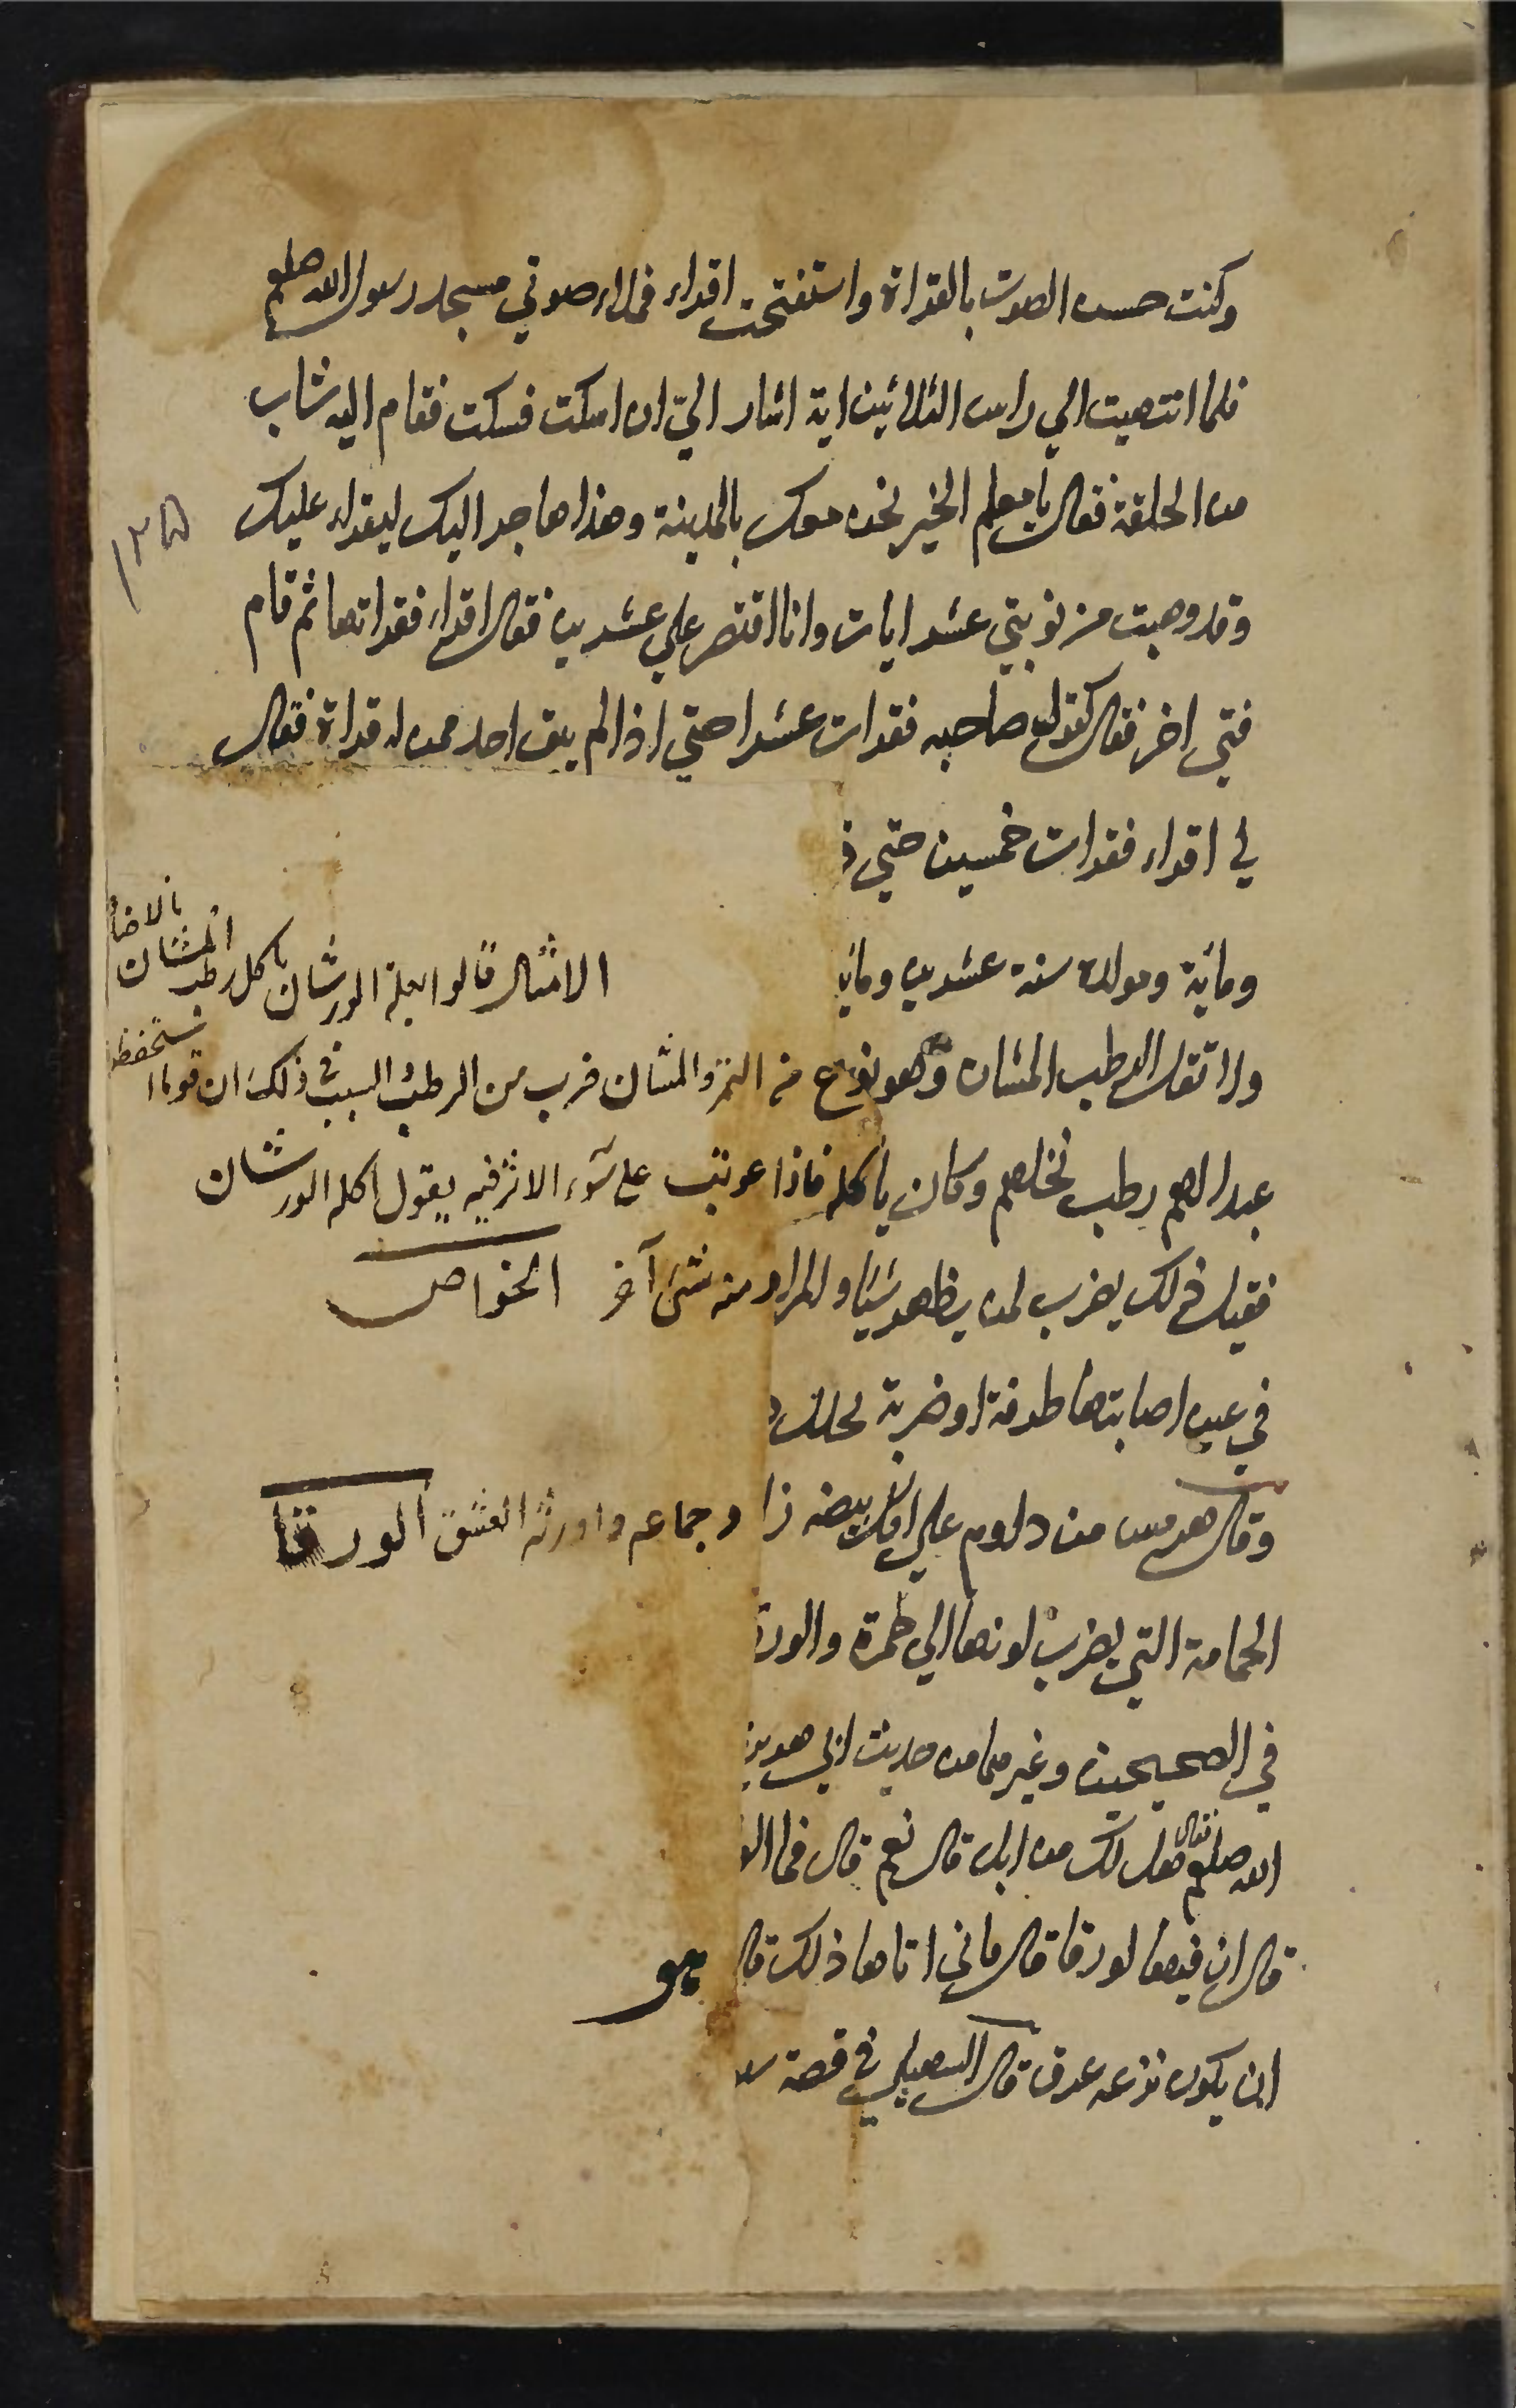 وكنت حسن الصوت بالقراة واستفتحت اقراء فملاء صوتي مسجد رسول الله صلعم
فلما انتهيت الي راس الثلاثين اية اشار الي ان اسكت فسكت فقام اليه شاب
من الحلقة فقال يا معلم الخير نحن معك بالمدينة وهذا هاجر اليك ليقراء عليك
وقد وهبت من نوبتي عشر ايات وانا اقتصر علي عشرين فقال اقراء فقراتها ثم قام
فتي اخر فقال كقول صاحبه فقرات عشرا حتي اذا لم يبق احد ممن له قراة فقال
لي اقراء فقرات خمسين حتي
وماية ومولده سنة عشرين وماي
الامثال قالوا بعلة الورشان ياكل رطب المشان
بالاضا
ولا تقل الرطب المشان وهو نوع من التمر والمشان ضرب من الرطب السبب في ذلك ان قوما
استحفظوا
عبدا لهم رطب نخلهم وكان ياكله فاذا عوتب على سوء الاثر فيه يقول اكله الورشان
فقيل ذلك يضرب لمن يظهر شيئا والمراد منه شئ آخر الخواص
في عين اصابتها طرفة او ضربة
وقال هرمس من داوم علي اكل بيضه زاد جماعه واورثه العشق الورقا
الحمامة التي يضرب لونها الي خمرة والور
في الصحيحين وغيرهما من حديث ابي هرير
الله صلعم فقال هل لك من ابل قال نعم قال فما ال
قال ان فيها لورقا قال فاني اتاها ذلك قا
ان يكون نزعه عرق قال السهيلي في قصة